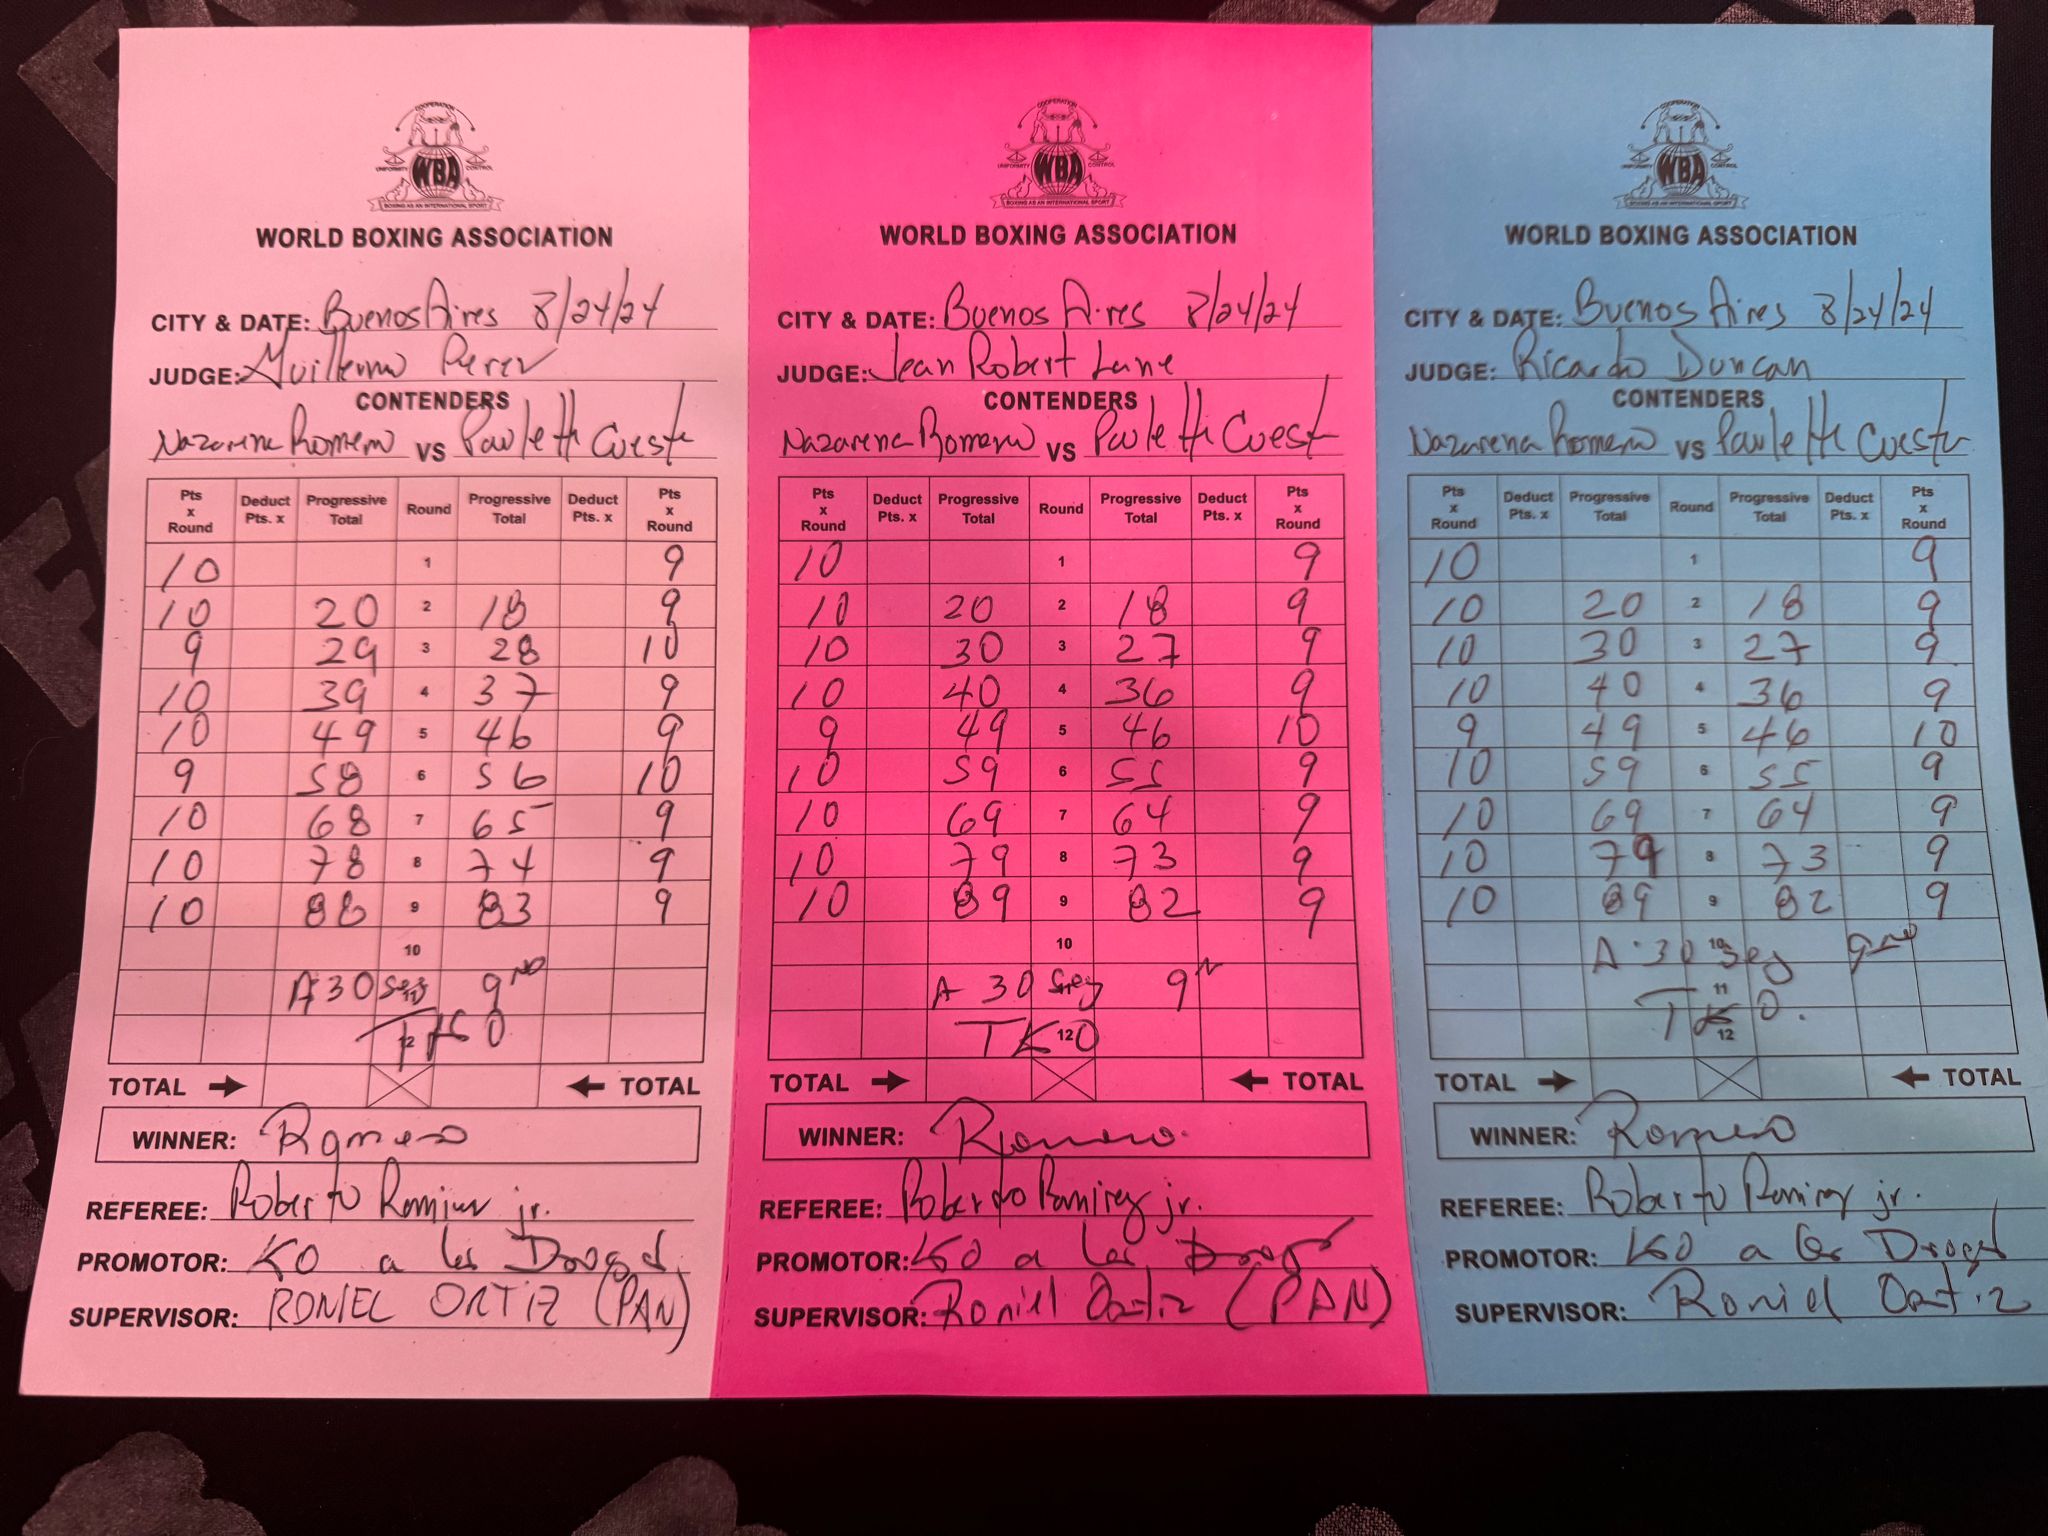 COOPERATION
UNIFORMITY WBA CONTROL
BOXING AS AN INTERNATIONAL SPORT
WORLD BOXING ASSOCIATION
CITY & DATE: Buenos Aires 8/24/24
JUDGE: Guillermo Perez
CONTENDERS
Nazarena Romero VS Paulette Cuesta
Pts x Round Deduct Pts. x Progressive Total Round Progressive Total Deduct Pts. x Pts x Round
10 1 9
10 20 2 18 9
9 29 3 28 10
10 39 4 37 9
10 49 5 46 9
9 58 6 56 10
10 68 7 65 9
10 78 8 74 9
10 88 9 83 9
10
A 30 seg 11 9no
TKO 12
TOTAL → ← TOTAL
WINNER: Romero
REFEREE: Roberto Ramirez jr.
PROMOTOR: KO a las Drogas
SUPERVISOR: RONIEL ORTIZ (PAN)
COOPERATION
UNIFORMITY WBA CONTROL
BOXING AS AN INTERNATIONAL SPORT
WORLD BOXING ASSOCIATION
CITY & DATE: Buenos Aires 8/24/24
JUDGE: Jean Robert Laine
CONTENDERS
Nazarena Romero VS Paulette Cuesta
Pts x Round Deduct Pts. x Progressive Total Round Progressive Total Deduct Pts. x Pts x Round
10 1 9
10 20 2 18 9
10 30 3 27 9
10 40 4 36 9
9 49 5 46 10
10 59 6 55 9
10 69 7 64 9
10 79 8 73 9
10 89 9 82 9
10
A 30 seg 11 9n
TKO 12
TOTAL → ← TOTAL
WINNER: Romero
REFEREE: Roberto Ramirez jr.
PROMOTOR: KO a las Drogas
SUPERVISOR: Roniel Ortiz (PAN)
COOPERATION
UNIFORMITY WBA CONTROL
BOXING AS AN INTERNATIONAL SPORT
WORLD BOXING ASSOCIATION
CITY & DATE: Buenos Aires 8/24/24
JUDGE: Ricardo Duncan
CONTENDERS
Nazarena Romero VS Paulette Cuesta
Pts x Round Deduct Pts. x Progressive Total Round Progressive Total Deduct Pts. x Pts x Round
10 1 9
10 20 2 18 9
10 30 3 27 9
10 40 4 36 9
9 49 5 46 10
10 59 6 55 9
10 69 7 64 9
10 79 8 73 9
10 89 9 82 9
A 30 10 seg 9no
11
TKO. 12
TOTAL → ← TOTAL
WINNER: Romero
REFEREE: Roberto Ramirez jr.
PROMOTOR: KO a las Drogas
SUPERVISOR: Roniel Ortiz